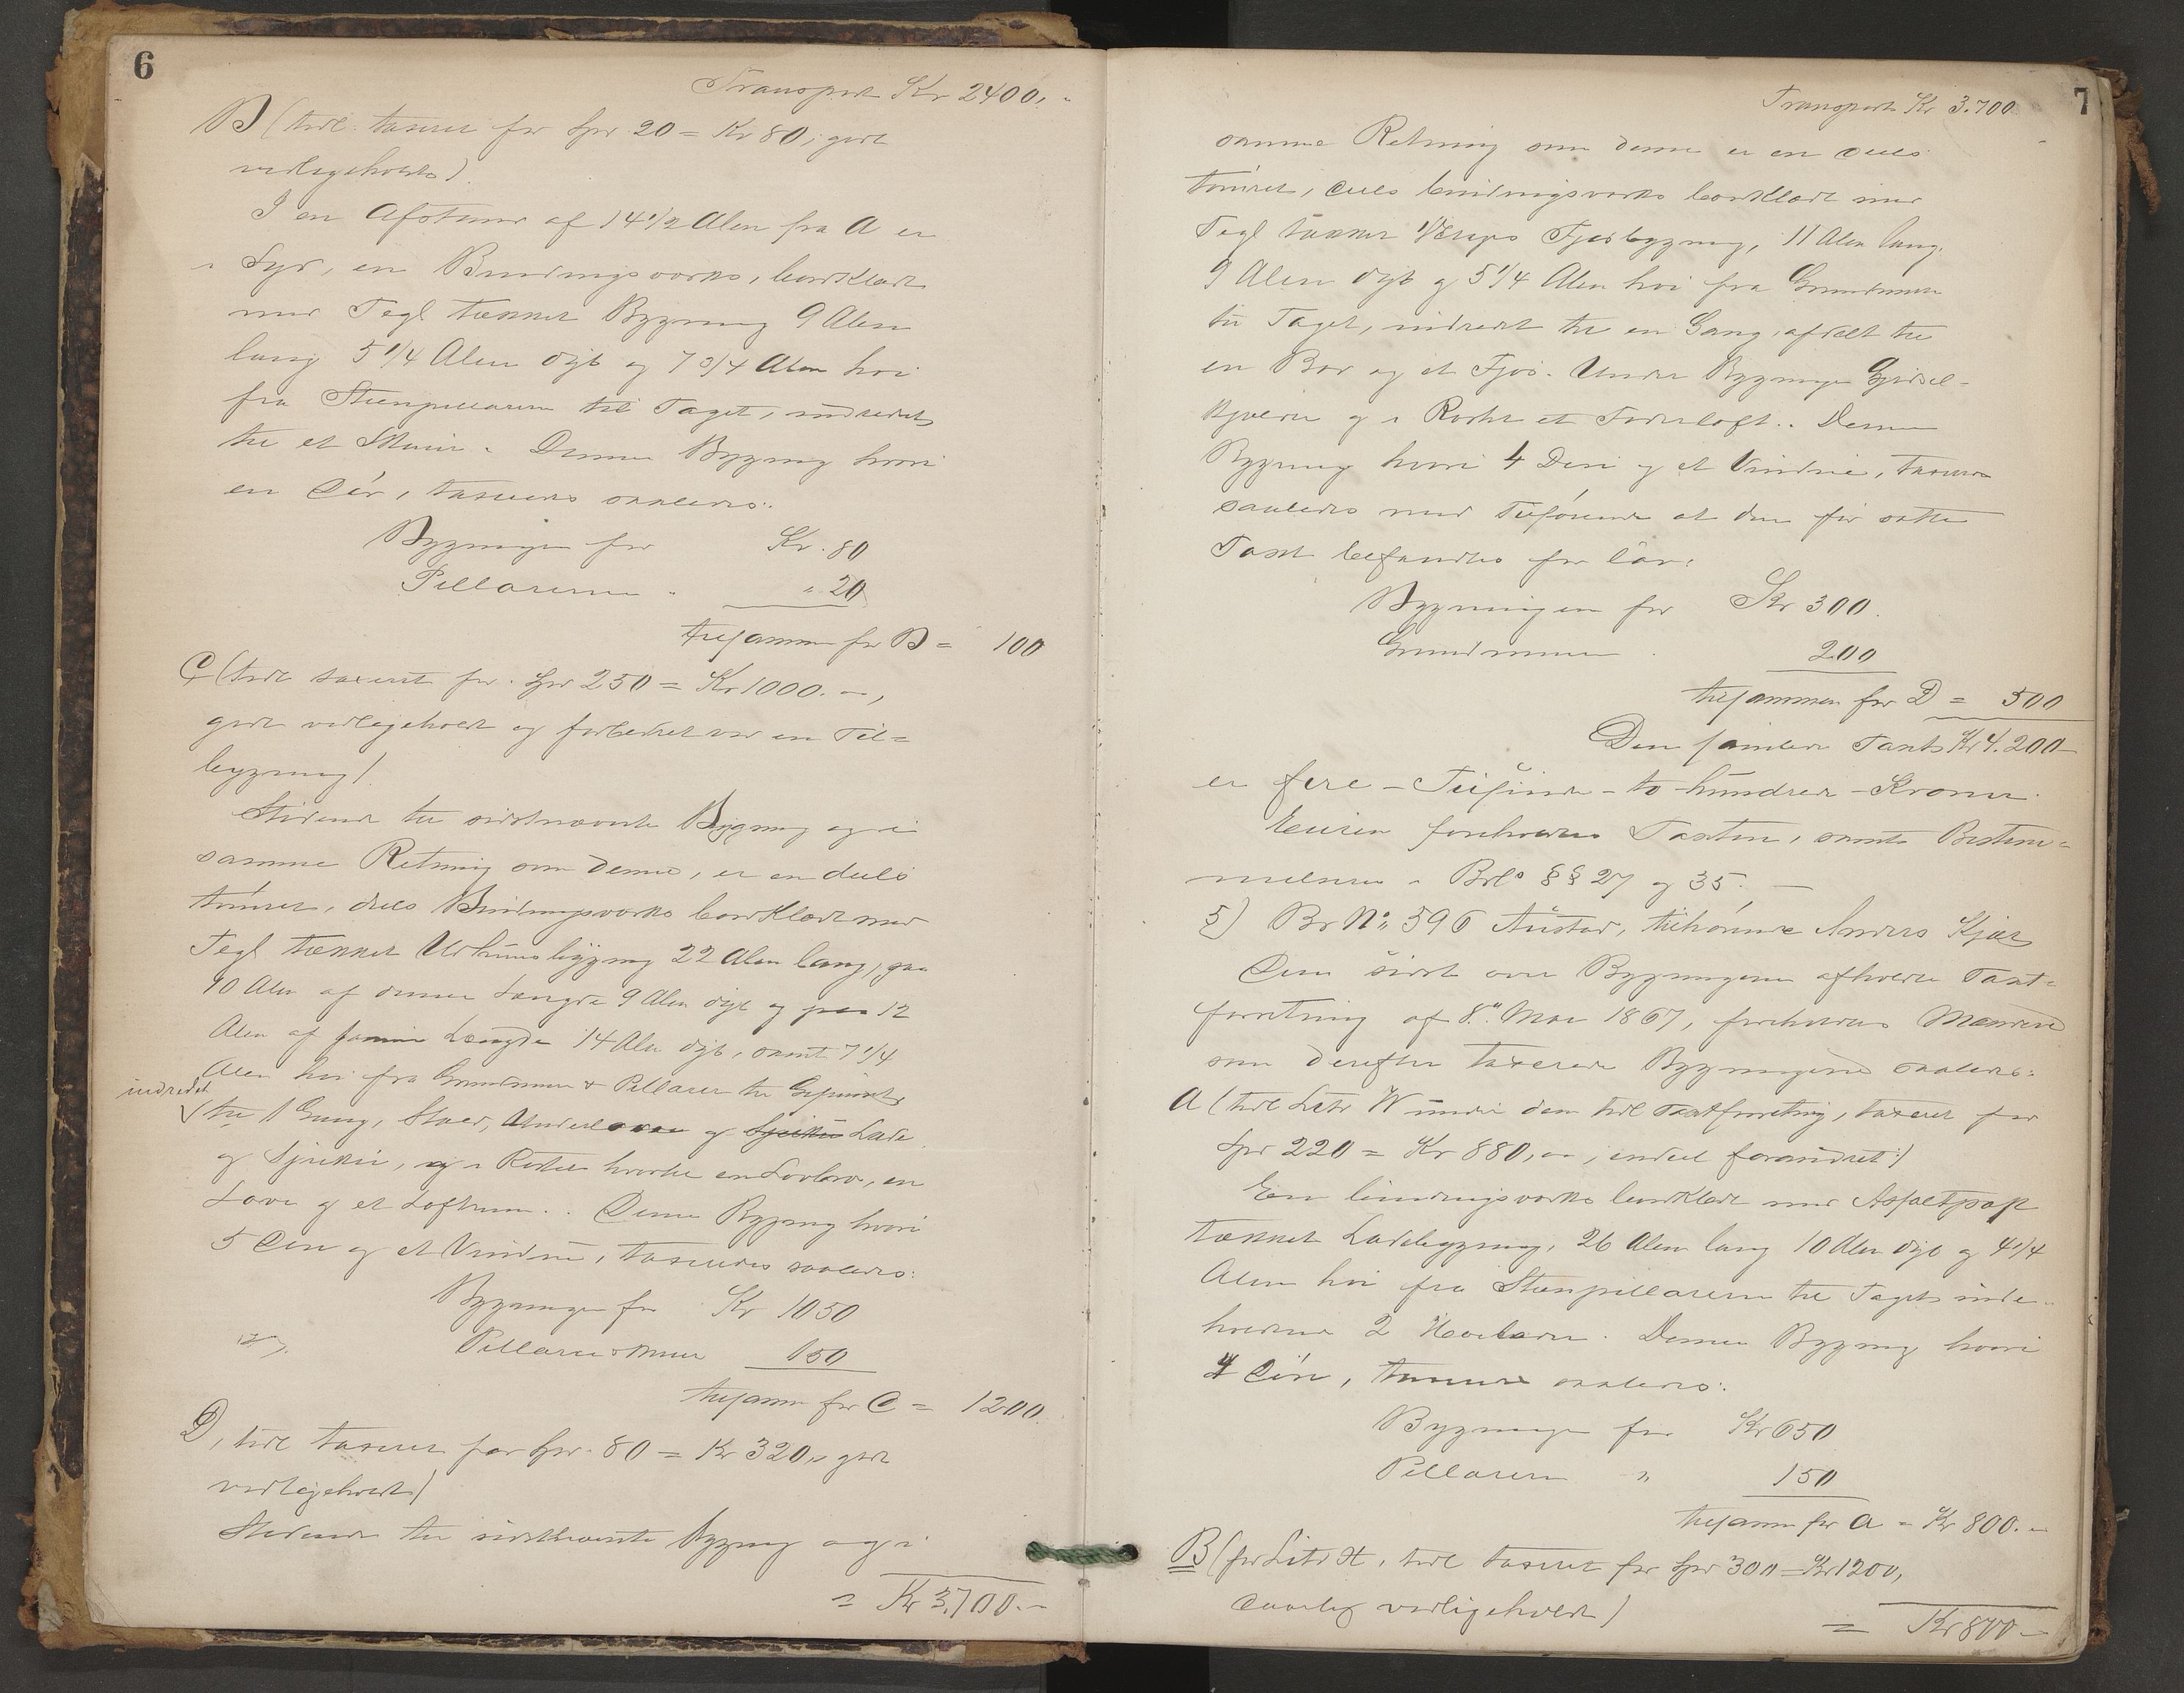 6
Transport Kr 2400,-
B (tidl. taxeret for Spd 20 = Kr 80, godt
vedligeholdt)
I en Afstand af 14 1/2 Alen fra A er
i Syd, en Bindingsværks, bordklædt
med Tegl tækket Bygning 9 Alen
lang 5 1/4 Alen dyb og 7 3/4 Alen høi
fra Steenpillarerne til Taget, indredet
til et Skuur. Denne Bygning hvori
en Dør, taxeredes saaledes:
Bygningen for Kr. 80
Pillarerne " " 20
tilsammen for B = 100
C (tidl taxeret for Spd 250 = Kr 1000.-,
godt vedligeholdt og forbedret ved en Til=
bygning)
Stødende til sidstnævnte Bygning og i
samme Retning som denne, er en deels
tømret, deels Bindingsværks bordklædt med
Tegl tækket Udhuusbygning 22 Alen lang, paa
10 Alen af denne Længde 9 Alen dyb og paa 12
Alen af samme Længde 14 Alen dyb, samt 7 1/4
Alen høi fra Grundmuur & Pillarer til Gesimset,
indredet
til 1 Gang, Stald, og Lade
og Spiskin, og i Røstet hvorhos en, en
Lave og et Loftrum. Denne Bygning hvori
5 Døre og et Vindue, taxeredes saaledes:
Bygningen for Kr 1050
Pillarer & Muur 150
tilsammen for C = 1200.
D, tidl taxeret for Spd. 80 = Kr 320,- godt
vedligeholdt)
Stødende til sidstnævnte Bygning og i
= Kr 3,700.-
7
Transport Kr 3.700
samme Retning som denne er en deels
tømret, deels bindingsværks bordklædt med
Tegl tækket Fjøsbygning, 11 Alen lang,
9 Alen dyb og 5 1/4 Alen høi fra Grundmuren
til Taget, indredet til en Gang, afdelt til
en Bod og et Fjøs. Under Bygningen Gjødsel-
kjelder og i Røstet et Foderloft. Denne
Bygning hvori 4 Døre og et Vindue, taxeredes
saaledes med Tilføiende at den før satte
Taxt befandtes for lav:
Bygningen for Kr 300.
Grundmuren 200
tilsammen for D = 500
Den samlede Taxt Kr 4.200
er fire - Tusinde - to hundrede - Kroner.
Eieren foreholdtes Taxten, samt Bestem=
melserne i Brl.s §§ 27 og 35. —
5) Br No 596 Austad, tilhørende Anders Kjær
Den sidst over Bygningerne afholdte Taxt=
forretning af 8de Mai 1867, foreholdtes Mændene
som derefter taxerede Bygningerne saaledes:
A (tidl Litr W under den tidl Taxtforretning, taxeret for
Spd 220 = Kr 880,-, endeel forandret)
En bindingsværks bordklædt med Asfaltpap
tækket Ladebygning, 26 Alen lang 10 Alen dyb og 4 1/4
Alen høi fra Steenpillarerne til Taget inde-
holdende 2 Høelader. Denne Bygning hvori
4 Døre, taxeredes saaledes:
Bygningen for Kr 650
Pillarerne " 150
tilsammen for A = Kr 800.-
B (før Litr H, tidl taxeret for Spd 300 = Kr 1200,
daarlig vedligeholdt)
= Kr 800-